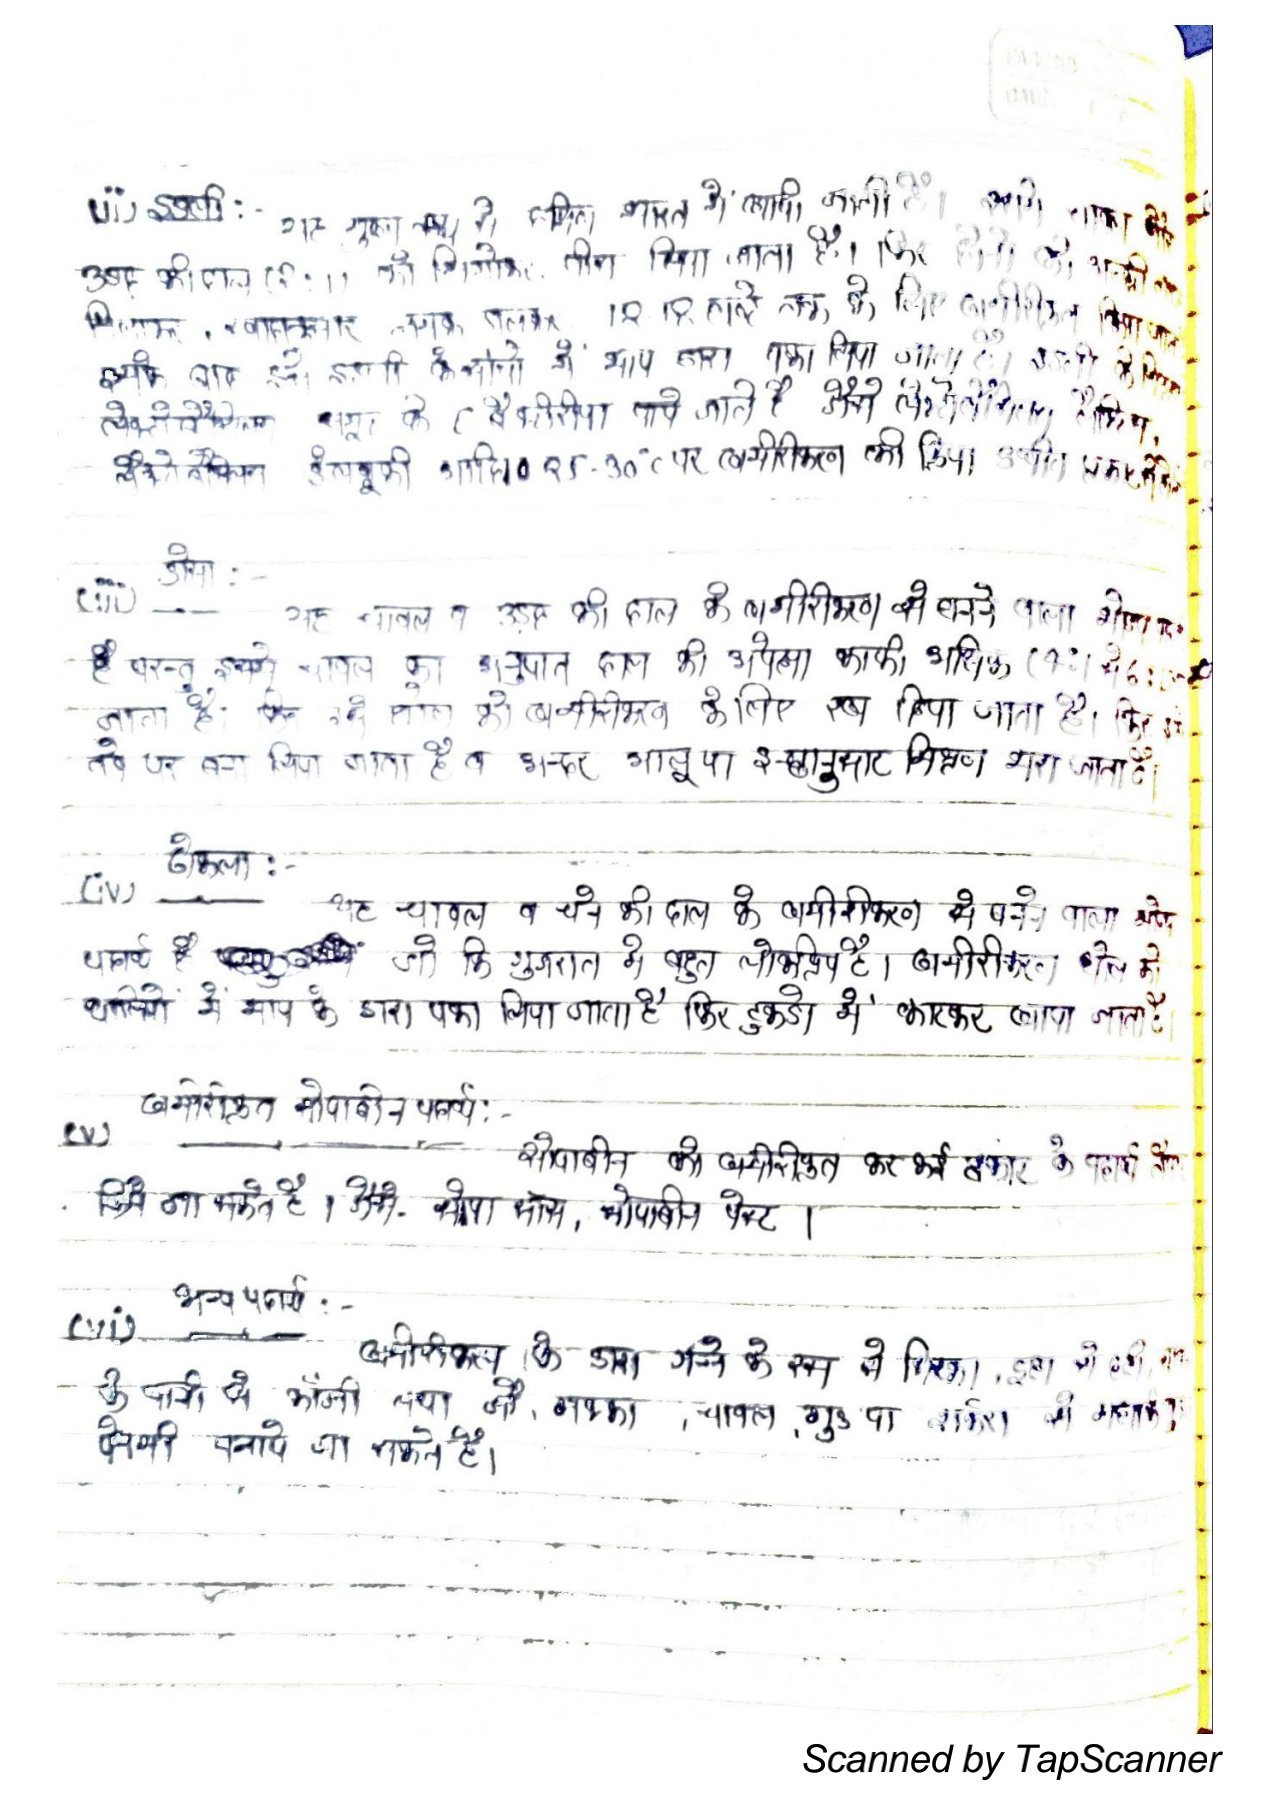 ii) इडली :-
यह मुख्य रूप से दक्षिण भारत में खायी जाती है।
उड़द की दाल (2:1) को भिगोकर पीस लिया जाता है। फिर दोनों को अच्छी
मिलाकर, स्वादानुसार नमक डालकर 12 घन्टे तक के लिए खमीरीकरण किया जाता
इसके बाद इसे इडली के सांचो में भाप द्वारा पका लिया जाता है। इडली के
समूह के बैक्टीरिया पाये जाते है जैसे
आदि। 25-30°C पर खमीरीकरण की क्रिया उचित प्रकार
डोसा :-
(iii) यह चावल व उड़द की दाल के खमीरीकरण से बनने वाला भोज्य
है परन्तु इसमे चावल का अनुपात दाल की अपेक्षा काफी अधिक (4:1 से 6:1
जाता है। फिर इस घोल को खमीरीकरण के लिए रख दिया जाता है। फिर इसे
तवे पर बना लिया जाता है व अन्दर आलू या इच्छानुसार मिश्रण भरा जाता है।
ढोकला :-
(iv) यह चावल व चने की दाल के खमीरीकरण से बनने वाला भोज्य
पदार्थ है जो कि गुजरात मे बहुत लोकप्रिय है। खमीरीकरण घोल को
थालियों में भाप के द्वारा पका लिया जाता है फिर टुकडो में काटकर खाया जाता है।
खमीरीकृत सोयाबीन पदार्थ :-
(v) सोयाबीन को खमीरीकृत कर कई प्रकार के पदार्थ तैयार
किये जा सकते है। जैसे- सोया सॉस, सोयाबीन पेस्ट।
अन्य पदार्थ :-
(vi) खमीरीकरण के द्वारा गन्ने के रस से सिरका, दूध से दही,
के पानी से कॉंजी तथा जौ, मक्का, चावल, गुड या शर्करा से
पेय भी बनाये जा सकते है।
Scanned by TapScanner